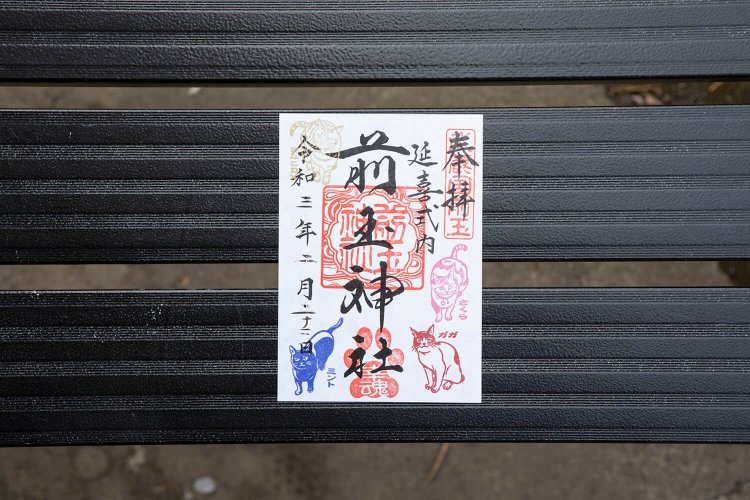 奉拝
延喜式内
前玉神社
令和三年二月二十二日
さくら
ガガ
ミント
魂